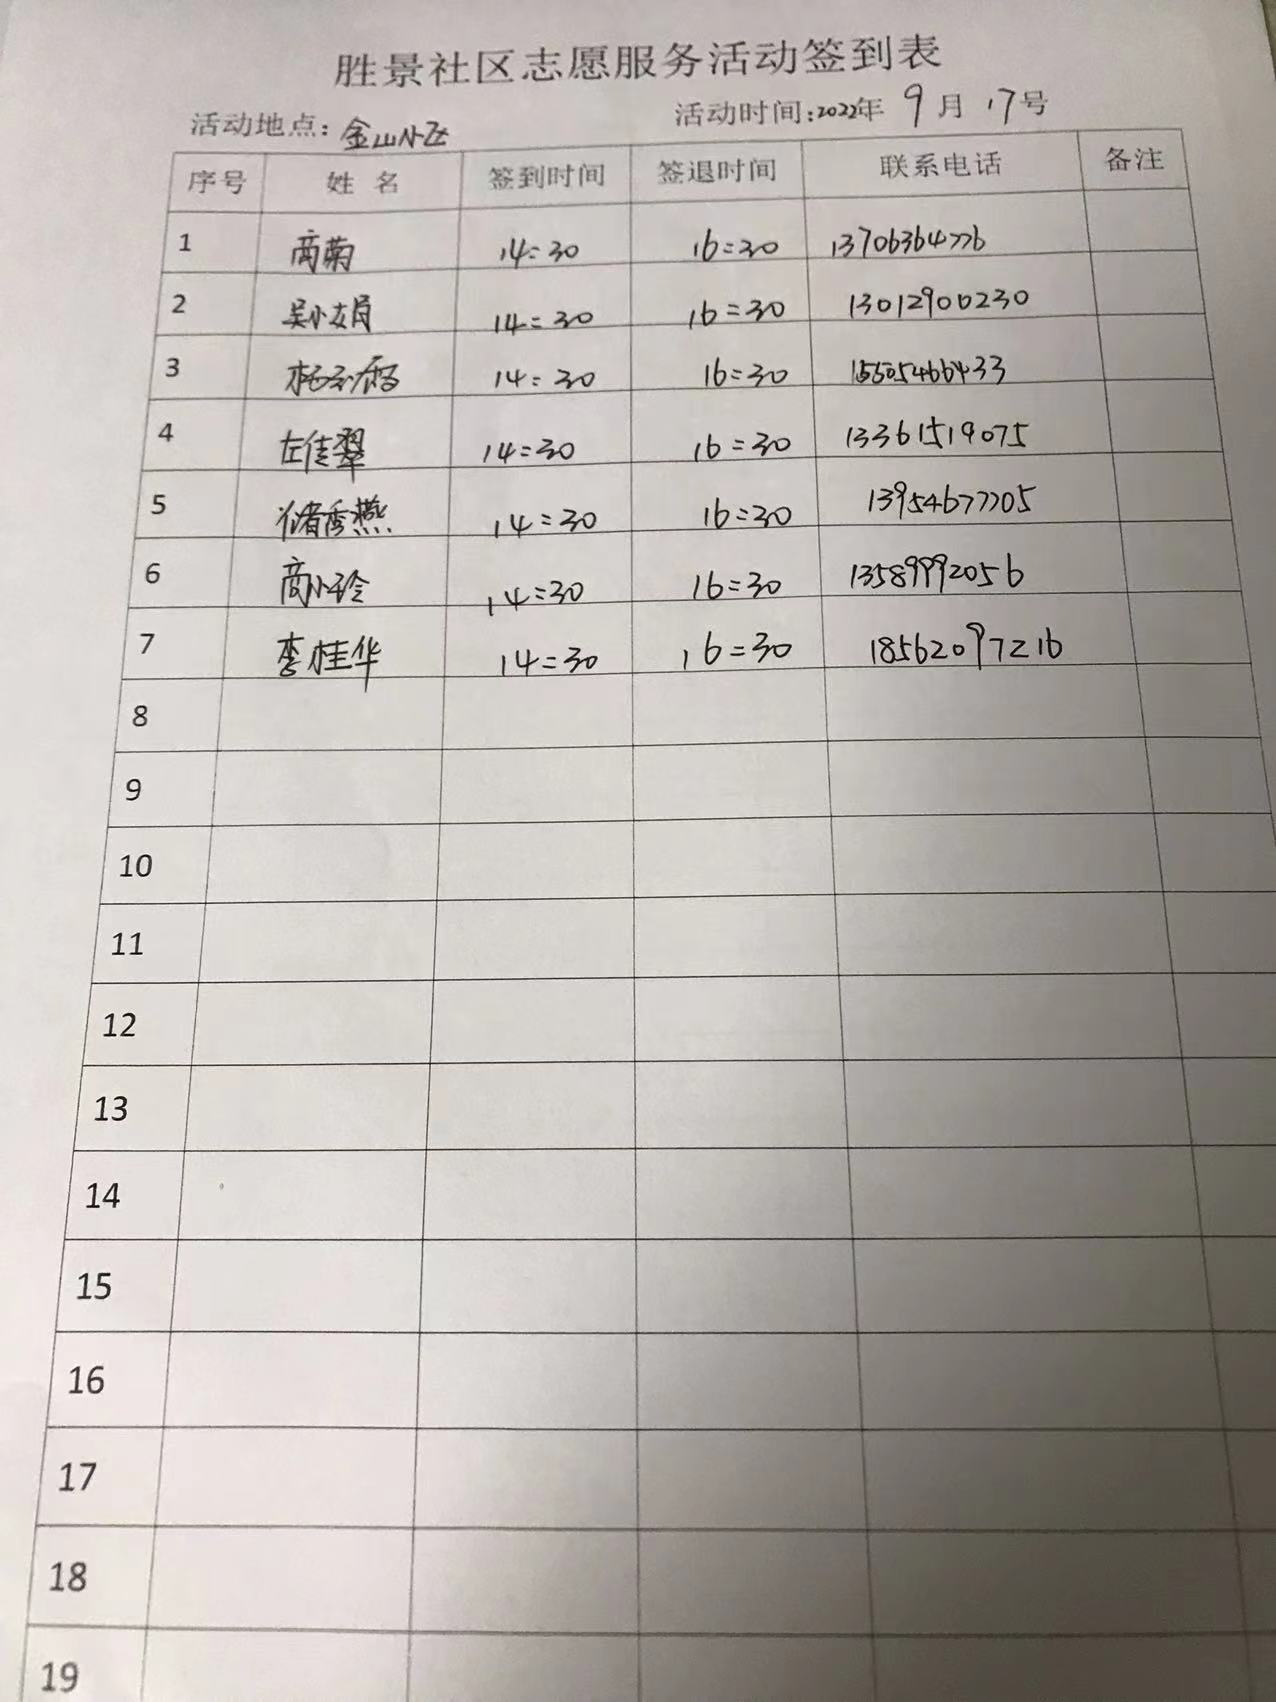 胜景社区志愿服务活动签到表
活动地点: 金山小区 活动时间:2022年 9月 17号
序号 姓名 签到时间 签退时间 联系电话 备注
1 商菊 14:30 16:30 13706364776
2 吴小娟 14:30 16:30 13012900230
3 14:30 16:30 15505466433
4 左佳翠 14:30 16:30 13361519075
5 储秀燕 14:30 16:30 13954677705
6 商小玲 14:30 16:30 13589992056
7 李桂华 14:30 16:30 18562097216
8
9
10
11
12
13
14
15
16
17
18
19